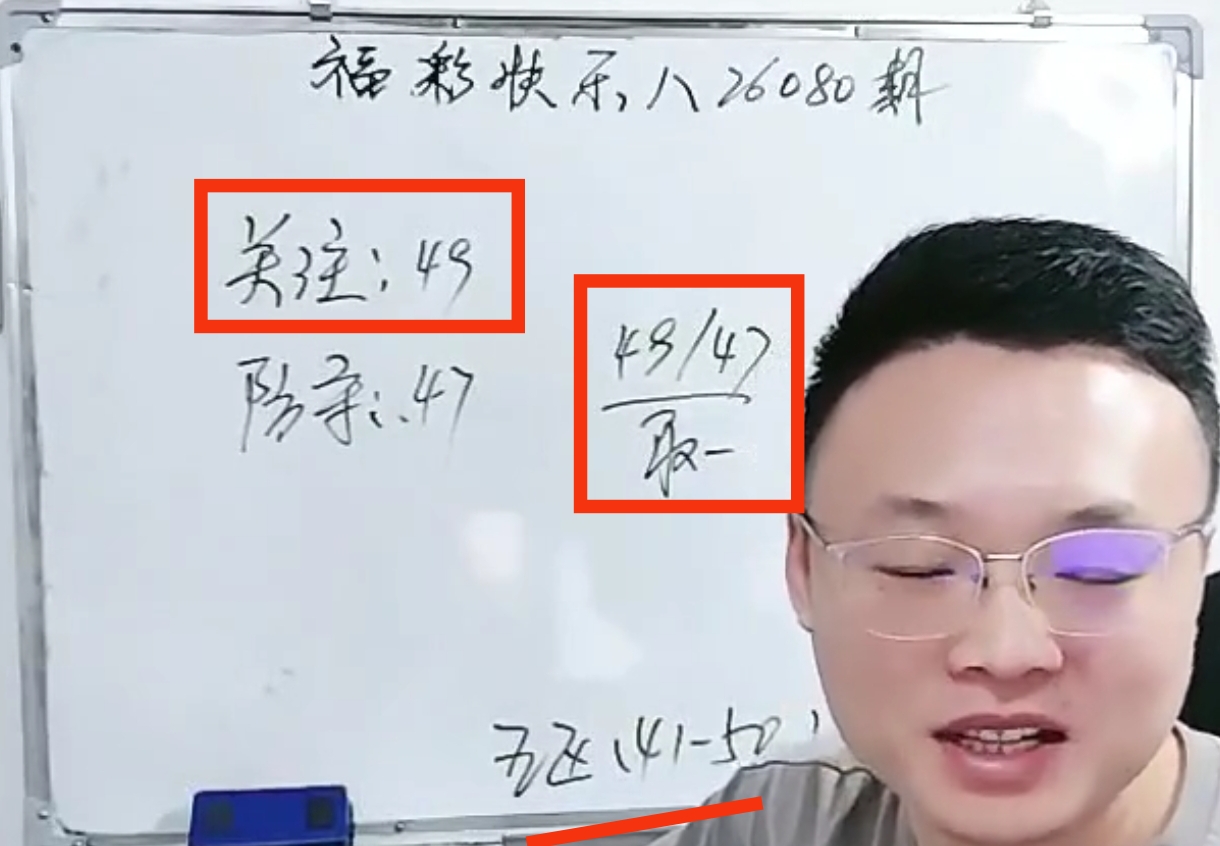 福彩快乐八26080期
关注:49
阶系:47
49/47
取一
五区(41-50)